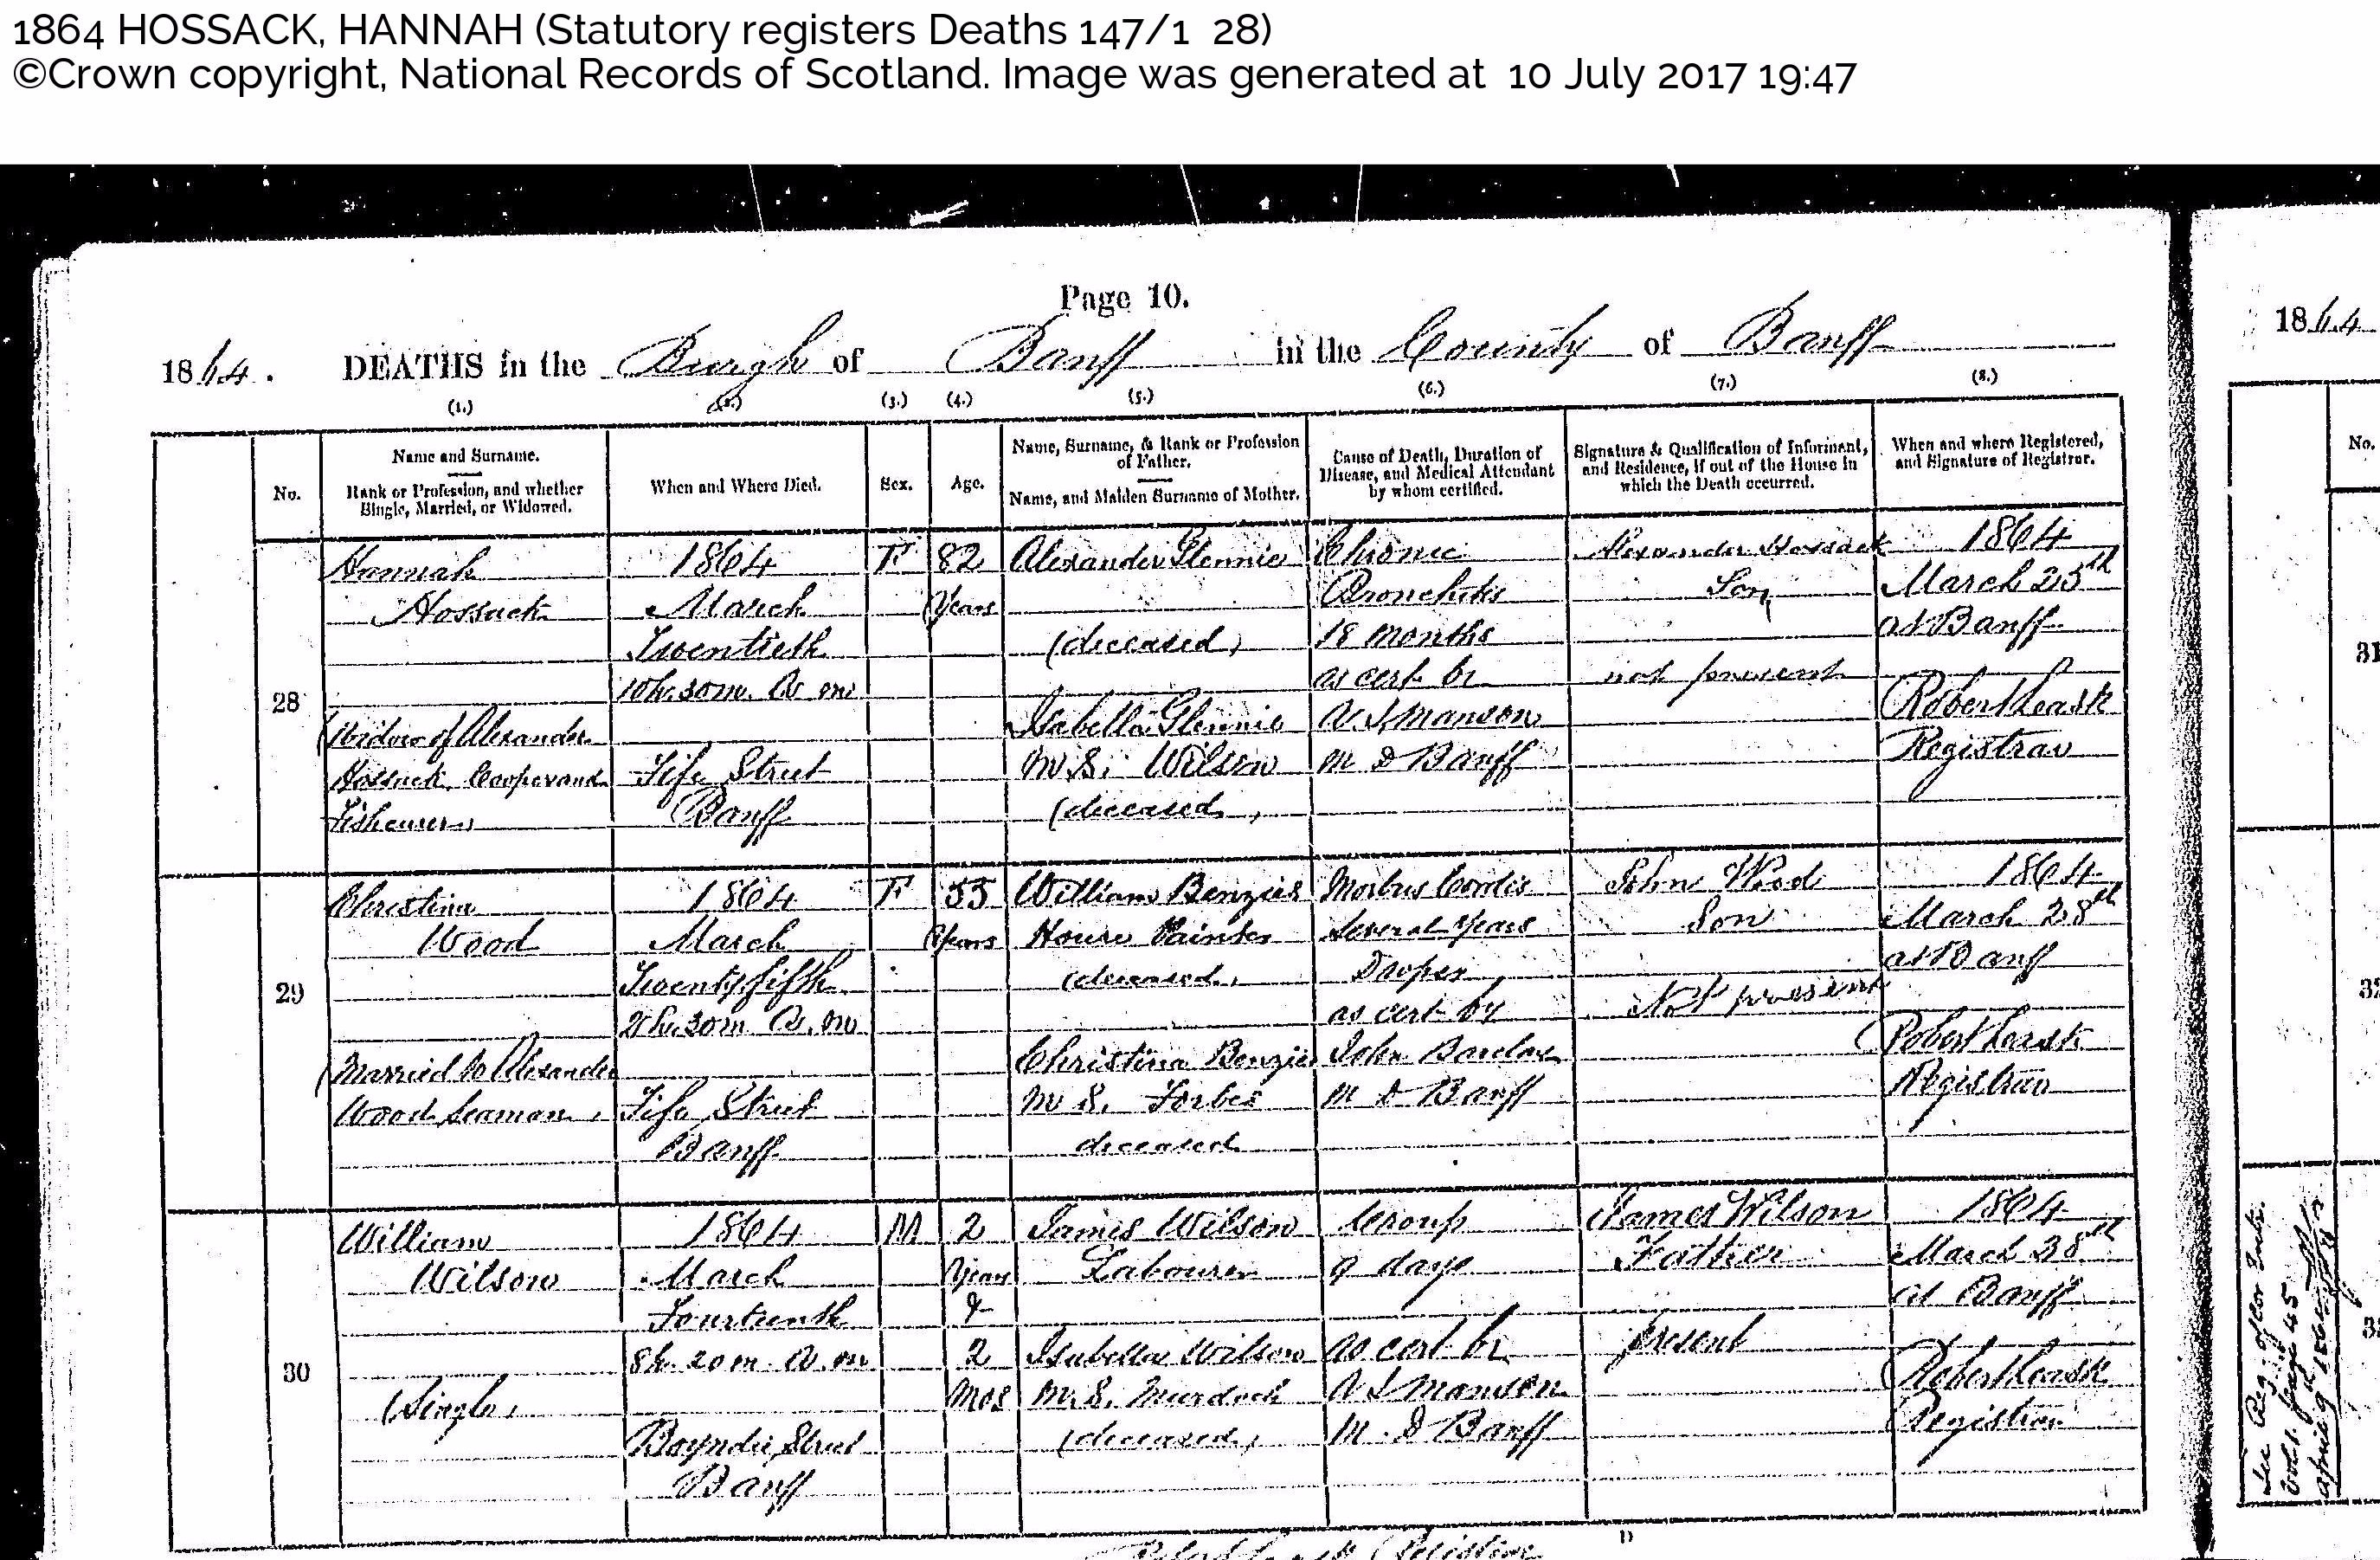 1864 HOSSACK, HANNAH (Statutory registers Deaths 147/1 28)
©Crown copyright, National Records of Scotland. Image was generated at 10 July 2017 19:47
Page 10.
1864. DEATHS in the Burgh of Banff in the County of Banff
1864
(1.) (2.) (3.) (4.) (5.) (6.) (7.) (8.)
No.
Name and Surname.
Rank or Profession, and whether
Single, Married, or Widowed.
When and Where Died.
Sex.
Age.
Name, Surname, & Rank or Profession
of Father.
Name, and Maiden Surname of Mother.
Cause of Death, Duration of
Disease, and Medical Attendant
by whom certified.
Signature & Qualification of Informant,
and Residence, if out of the House in
which the Death occurred.
When and where Registered,
and Signature of Registrar.
No.
28
Hannah
Hossack
(Widow of Alexander
Hossack Cooper and
1864
March
Twentieth
10h. 30m. A m
Fife Street
Banff
F
82
Years
Alexander Glennie
(deceased)
Isabella Glennie
M.S. Wilson
(deceased)
Chronic
Bronchitis
18 months
as cert by
A. J. Manson
M D Banff
Alexander Hossack
Son
not present
1864
March 23th
at Banff
Robert Leask
Registrar
29
Christina
Wood
(Married to Alexander
Wood Seaman
1864
March
Twenty fifth
2h. 30m A. m
Fife Street
Banff
F
55
Years
William Benzies
House Painter
(deceased)
Christina Benzies
M S. Forbes
deceased
Morbus Cordis
Several Years
Dropsy
as cert by
John Barclay
M D Banff
John Wood
Son
Not present
1864
March 28th
at Banff
Robert Leask
Registrar
30
William
Wilson
(Single)
1864
March
Fourteenth
8h. 20m. A. m
Boyndie Street
Banff
M
2
Years
&
2
Mos
James Wilson
Labourer
Isabella Wilson
M.S. Murdoch
(deceased)
Croup
9 days
as cert by
A J Manson
M. D Banff
James Wilson
Father
present
1864
March 28th
at Banff
Robert Leask
Registrar
Robert Leask Registrar
31